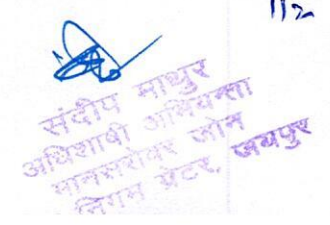 112
संदीप माथुर
अधिशाषी अभियन्ता
मानसरोवर जोन
निगम ग्रेटर, जयपुर